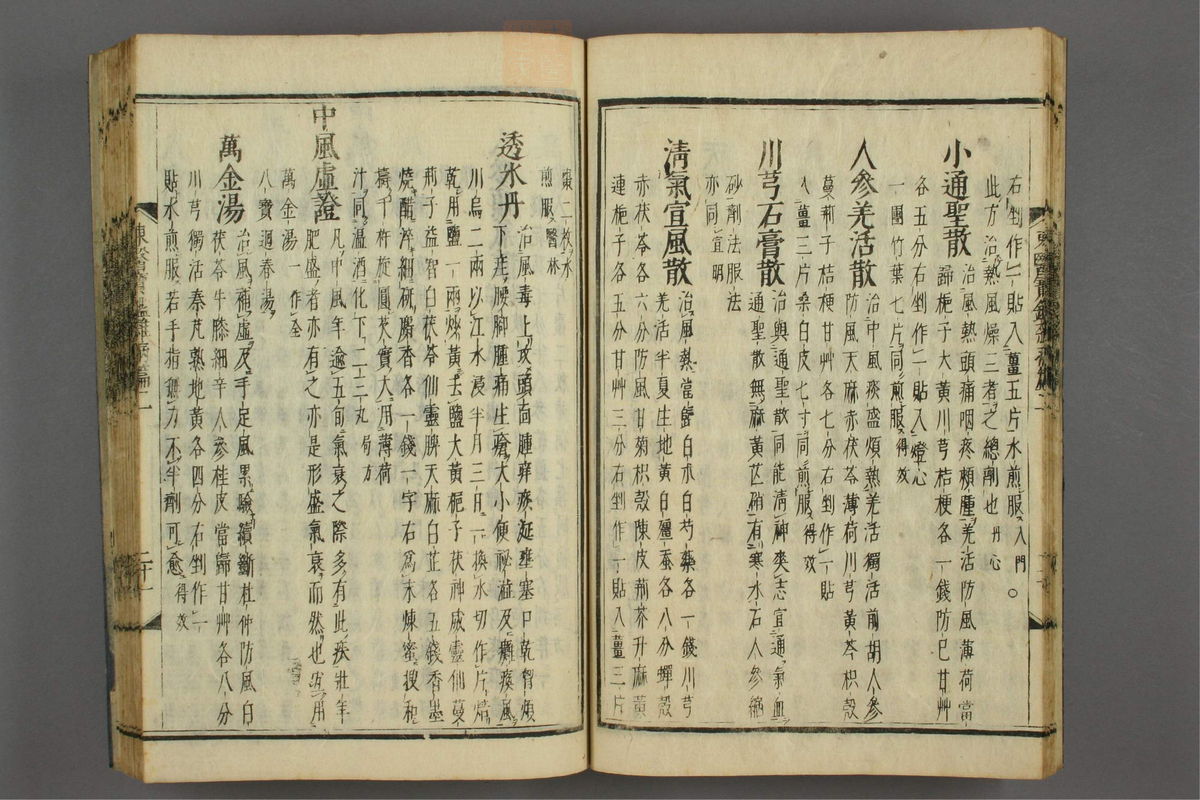 右剉作一貼入薑五片水煎服入門○
此方治熱風燥三者之總劑也丹心
小通聖散治風熱頭痛咽疼頰腫羌活防風薄荷當
歸梔子大黃川芎桔梗各一錢防巳甘艸
各五分右剉作一貼入燈心
一團竹葉七片同煎服得效
人參羌活散治中風痰盛煩熱羌活獨活前胡人參
防風天麻赤茯苓薄荷川芎黃芩枳殼
蔓荊子桔梗甘艸各七分右剉作一貼
入薑三片桑白皮七寸同煎服得效
川芎石膏散治與通聖散同能淸神爽志宜通氣血
通聖散無麻黃芒硝有寒水石人參縮
砂劑法服法
亦同宣明
淸氣宣風散治風熱當歸白朮白芍藥各一錢川芎
羌活半夏生地黃白殭蚕各八分蟬殼
赤茯苓各六分防風甘菊枳殼陳皮荊芥升麻黃
連梔子各五分甘艸三分右剉作一貼入薑三片
棗二枚水
煎服醫林
透氷丹治風毒上攻頭面腫痒痰涎壅塞口乾智煩
下疰腰脚腫痛生瘡大小便秘澁及癱瘓風
川烏二兩以江水浸半月三日一換水切作片焙
乾用鹽一兩炒黃去鹽大黃梔子茯神威靈仙蔓
荊子益智白茯苓仙靈脾天麻白芷各五錢香墨
燒醋淬細硏麝香各一錢一字右爲末煉蜜搜和
擣千杵旋圓芡實大用薄荷
汁同溫酒化下二三丸局方
中風虛證凡中風年逾五旬氣衰之際多有此疾壯年
肥盛者亦有之亦是形盛氣衰而然也宜用
萬金湯
八寶廻春湯
萬金湯治風補虛及手足風累驗續斷杜仲防風白
茯苓牛膝細辛人參桂皮當歸甘艸各八分
川芎獨活秦芃熟地黃各四分右剉作一
貼水煎服若手指無力不半劑可愈得效